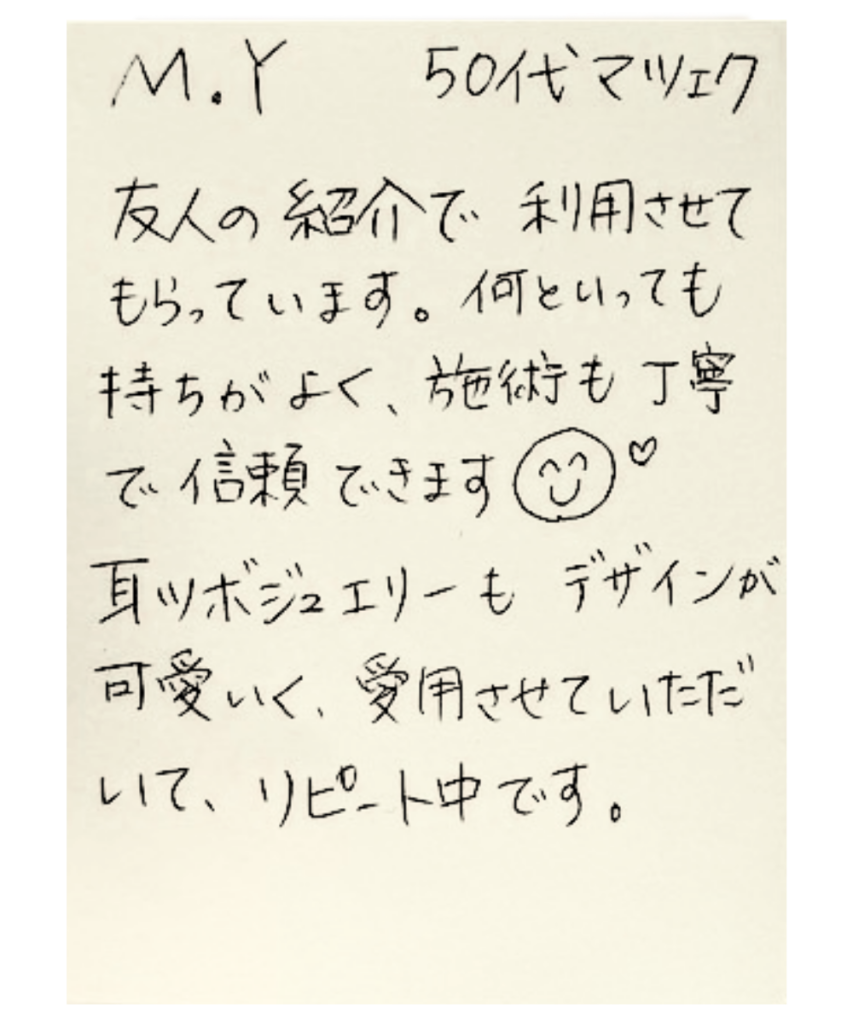 M.Y 50代マツェク
友人の紹介で 利用させて
もらっています。何といっても
持ちがよく、施術も丁寧
で信頼できます
耳ツボジュエリーも デザインが
可愛いく、愛用させていただ
いて、リピート中です。